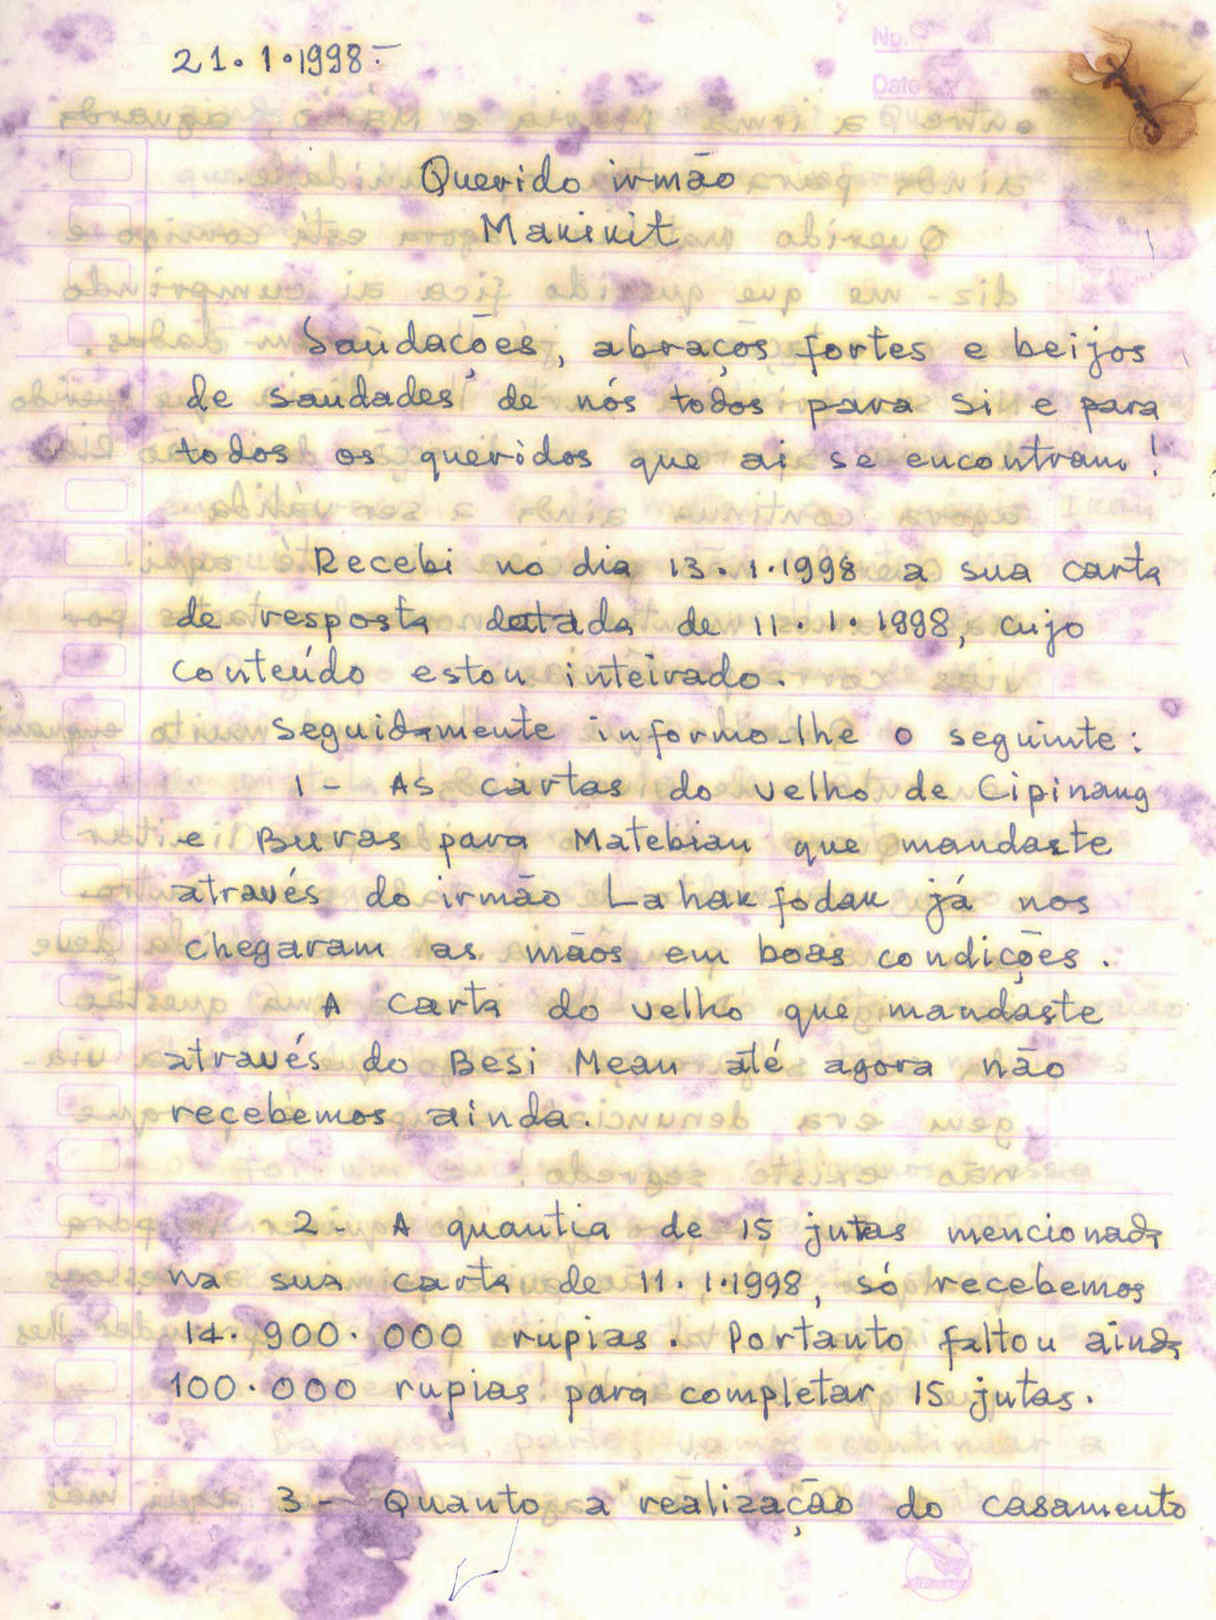 No.
Date
21.1.1998.-
Querido irmão
Makikit
Saudações, abraços fortes e beijos
de saudades de nós todos para si e para
todos os queridos que ai se encontram!
Recebi no dia 13.1.1998 a sua carta
de resposta datada de 11.1.1998, cujo
conteúdo estou inteirado.
Seguidamente informo-lhe o seguinte:
1 - As cartas do velho de Cipinang
e Buras para Matebian que mandaste
através do irmão Lahak fodak já nos
chegaram as mãos em boas condições.
A carta do velho que mandaste
através do Besi Mean até agora não
recebemos ainda.
2 - A quantia de 15 jutas mencionada
na sua carta de 11.1.1998, só recebemos
14.900.000 rupias. Portanto faltou ainda
100.000 rupias para completar 15 jutas.
3 - Quanto a realização do casamento